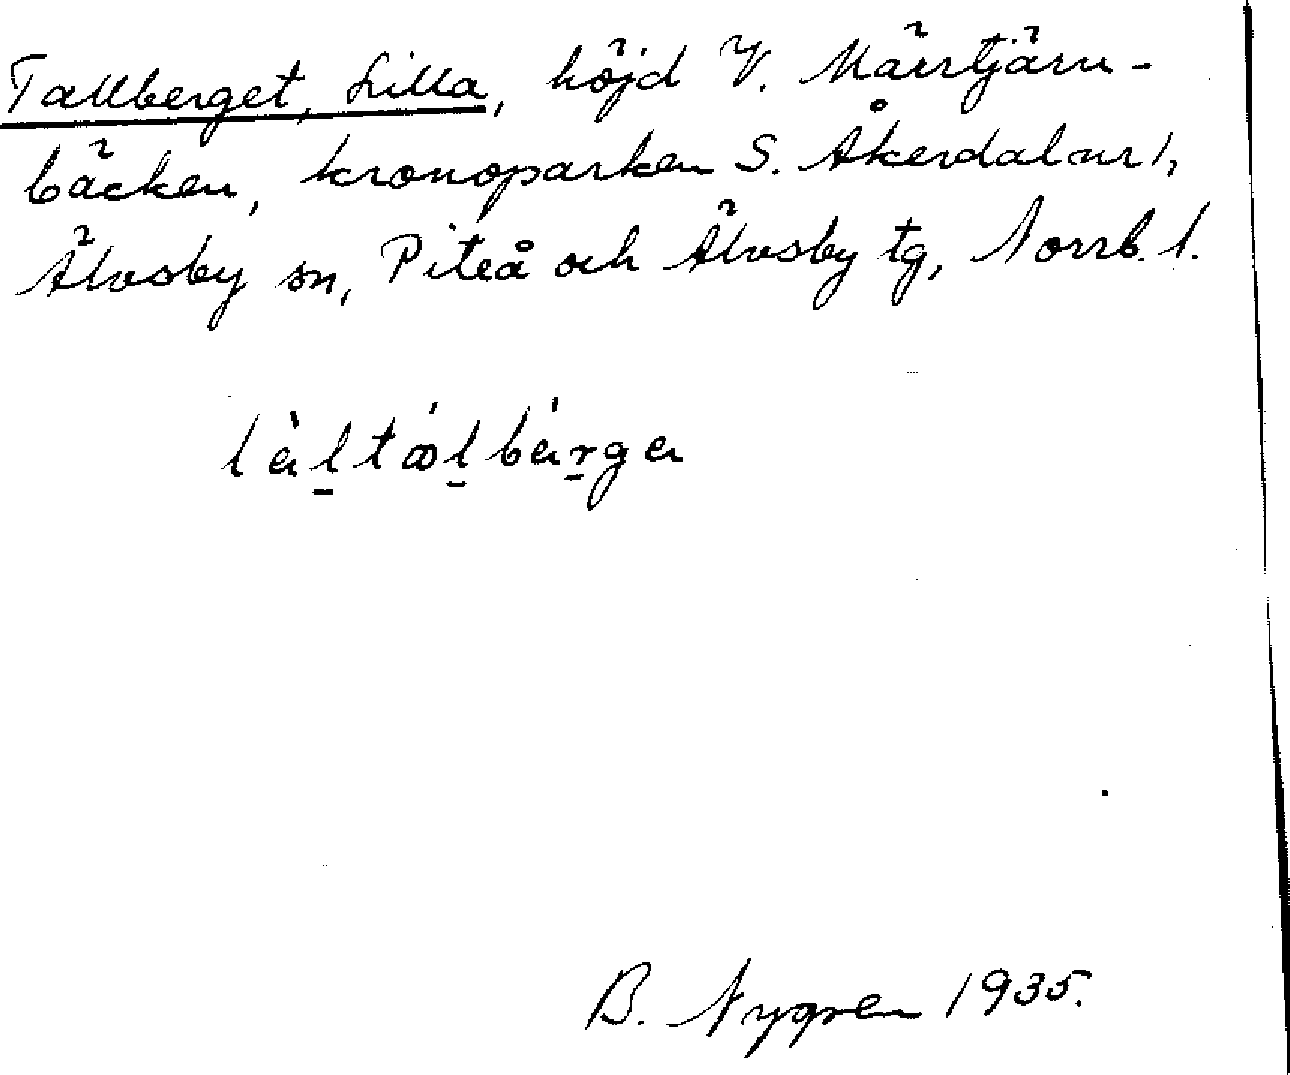 Tallberget, Lilla, höjd V. Märrtjärn-
bäcken, kronoparken S. Åkerdal nr 1,
Älvsby sn, Piteå och Älvsby tg, Norrb. l.
B. Nygren 1935.